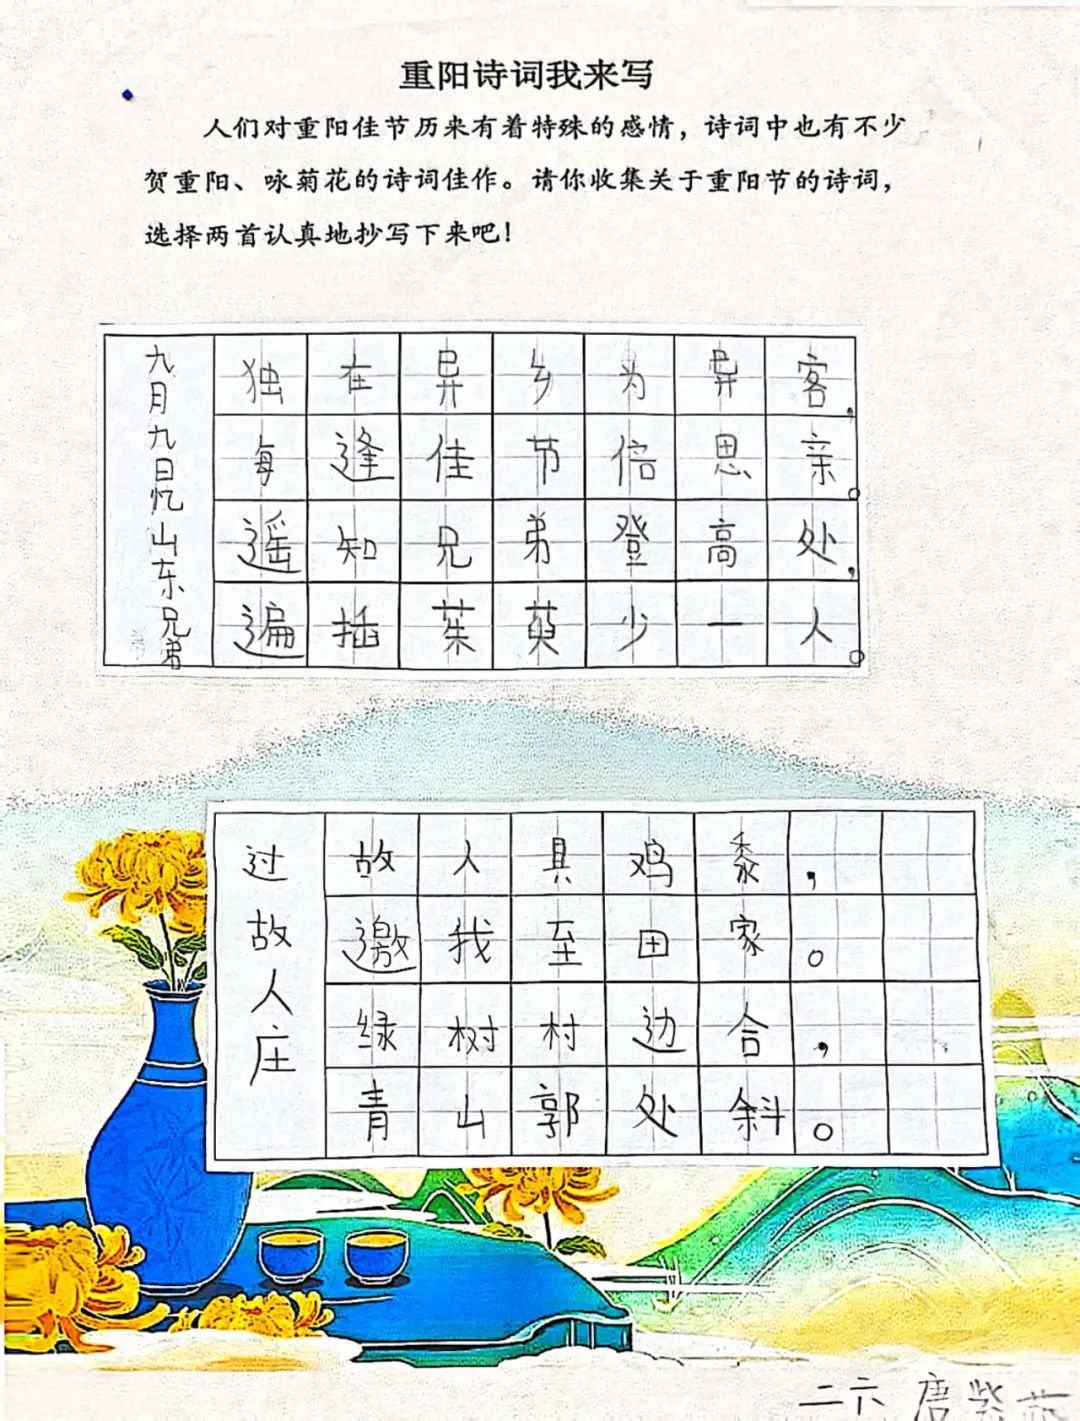 重阳诗词我来写
人们对重阳佳节历来有着特殊的感情，诗词中也有不少
贺重阳、咏菊花的诗词佳作。请你收集关于重阳节的诗词，
选择两首认真地抄写下来吧！
九月九日忆山东兄弟
独在异乡为异客，
每逢佳节倍思亲。
遥知兄弟登高处，
遍插茱萸少一人。
过故人庄
故人具鸡黍，
邀我至田家。
绿树村边合，
青山郭处斜。
二六 唐紫